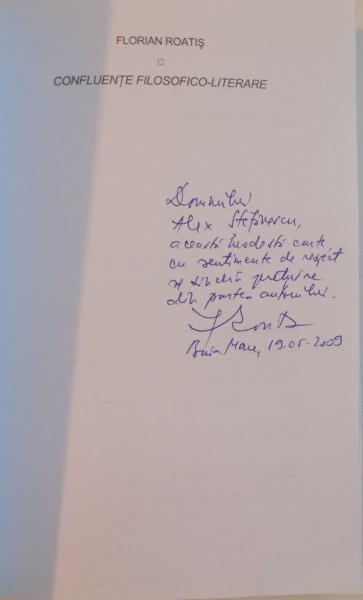 FLORIAN ROATIŞ
CONFLUENŢE FILOSOFICO-LITERARE
Domnului
Alex Ştefănescu,
această modestă carte
cu sentimente de respect
şi sinceră preţuire
din partea autorului.
Baia Mare, 19.05-2009